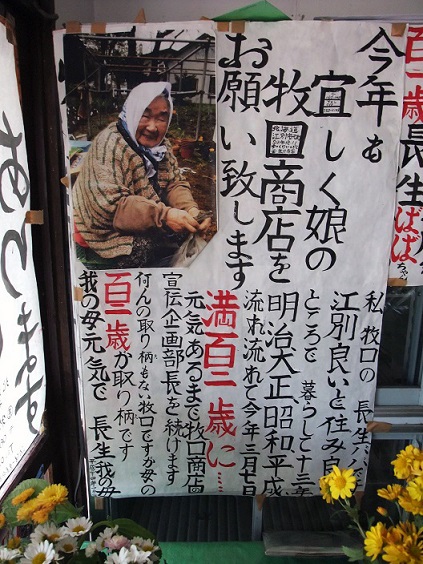 今年も
宜しく娘の
牧口商店を
お願い致します
私 牧口の 長生バ
江別良いと住み良
ところで 暮らして十三年
明治大正昭和平成
流れ流れて今年三月七日
満百二歳に……
元気あるまで牧口商店
宣伝企画部長を続けます
何んの取り柄もない牧口ですが母の
百二歳が取り柄です
我の母元気で 長生我の母
百二歳 長生ばばちゃん